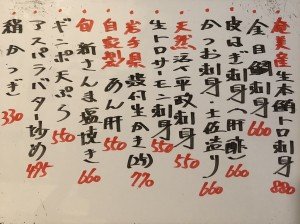 奄美産 生本鮪トロ刺身 880
金目鯛刺身 660
皮はぎ刺身(肝酢) 660
かつお刺身・土佐造り 660
天然 活〆平政刺身 550
生トロサーモン刺身 550
岩手県 殻付生かき(2ヶ) 770
自家製 あん肝 660
旬 新さんま塩焼き 660
ギンポ天ぷら 550
アスパラバター炒め 495
稍かっぎ 330